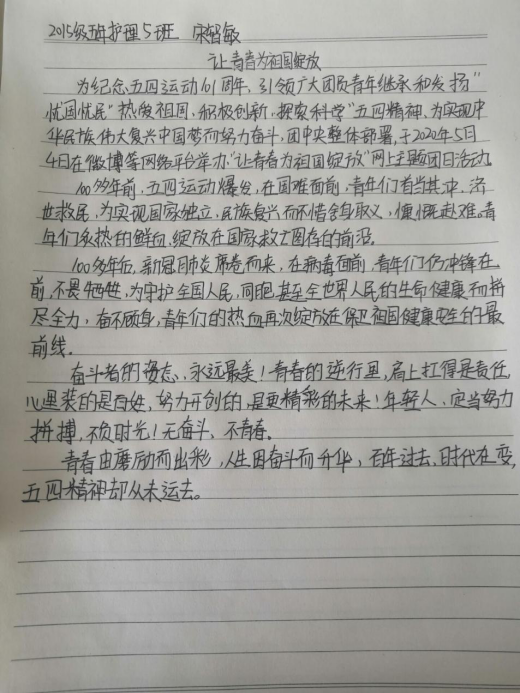 2015级班护理5班 宋智敏
让青春为祖国绽放
为纪念五四运动101周年，引领广大团员青年继承和发扬“
忧国忧民”热爱祖国，积极创新，探索科学”五四精神，为实现中
华民族伟大复兴中国梦而努力奋斗，团中央整体部署，于2020年5月
4日在微博等网络平台举办“让青春为祖国绽放”网上主题团日活动。
100多年前，五四运动爆发，在国难面前，青年们首当其冲，济
世救民，为实现国家独立，民族复兴而不惜舍身取义，慷慨赴难。青
年们炙热的鲜血，绽放在国家救亡图存的前沿。
100多年后，新冠肺炎席卷而来，在病毒面前，青年们仍冲锋在
前，不畏牺牲，为守护全国人民，同胞，甚至全世界人民的生命健康而拼
尽全力，奋不顾身，青年们的热血再次绽放在保卫祖国健康安全的最
前线。
奋斗者的姿态，永远最美！青春的逆行里，肩上扛得是责任，
心里装的是百姓，努力开创的，是更精彩的未来！年轻人，应当努力
拼搏，不负时光！无奋斗，不青春。
青春由磨励而出彩，人生因奋斗而升华，百年过去，时代在变，
五四精神却从未远去。